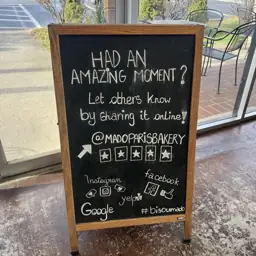 HAD AN
AMAZING MOMENT?
Let others know
by sharing it online!
@MADOPARISBAKERY
Instagram
facebook
yelp
Google
#bisoumado